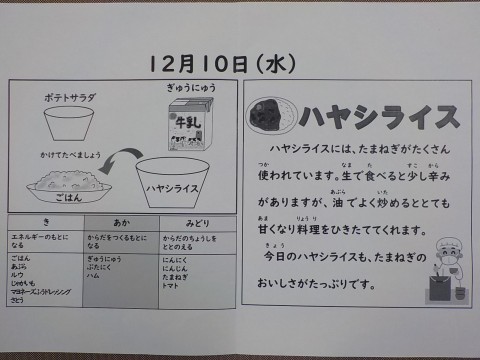 12月10日（水）
ポテトサラダ
ぎゅうにゅう
牛乳
かけてたべましょう
ごはん
ハヤシライス
き
あか
みどり
エネルギーのもとに
なる
からだをつくるもとに
なる
からだのちょうしを
ととのえる
ごはん
あぶら
ルウ
じゃがいも
マヨネーズふうドレッシング
さとう
ぎゅうにゅう
ぶたにく
ハム
にんにく
にんじん
たまねぎ
トマト
ハヤシライス
ハヤシライスには、たまねぎがたくさん
つか なま た すこ から
使われています。生で食べると少し辛み
あぶら いた
がありますが、油でよく炒めるととても
あま りょう り
甘くなり料理をひきたててくれます。
きょう
今日のハヤシライスも、たまねぎの
おいしさがたっぷりです。